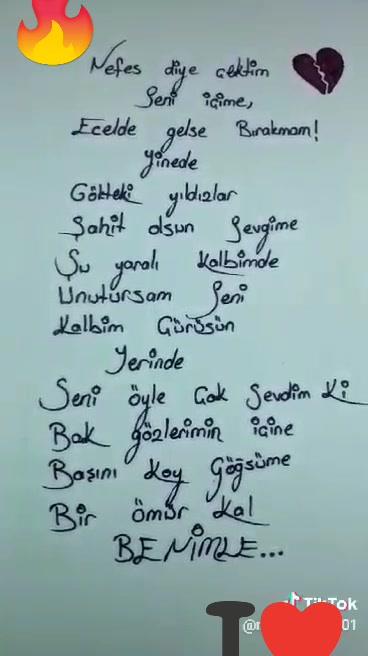 Nefes diye çektim
Seni içime,
Ecelde gelse Bırakmam!
Yinede
Gökteki yıldızlar
Şahit olsun Sevgime
Şu yaralı Kalbimde
Unutursam Seni
Kalbim Çürüsün
Yerinde
Seni öyle Çok Sevdim Ki
Bak gözlerimin içine
Başını Koy Göğsüme
Bir ömür Kal
BENİMLE...
TikTok
I